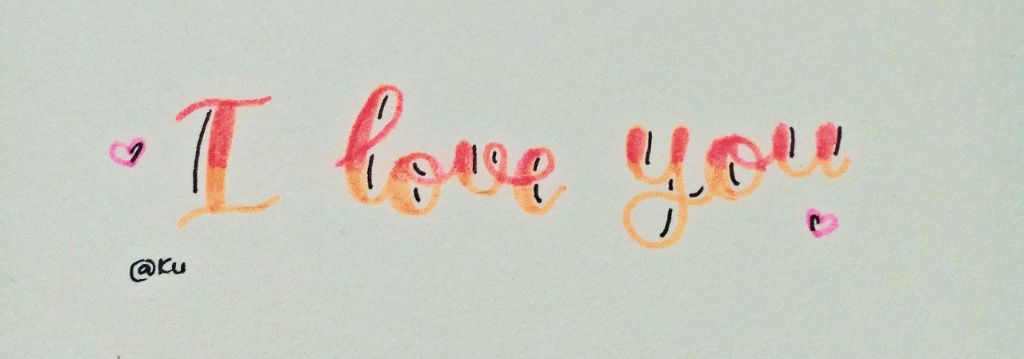 I love you
@Ku